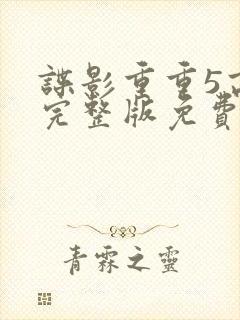 諜影重重5高
完整版免費
青霖之靈